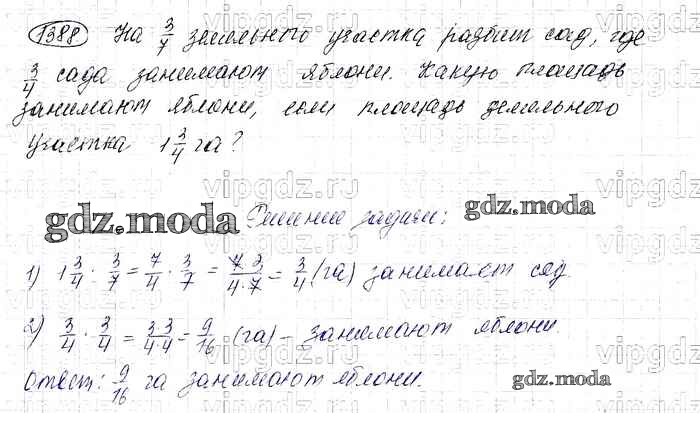 1388 На 3/7 земельного участка разбит сад, где
3/4 сада занимают яблони. Какую площадь
занимают яблони, если площадь земельного
участка 1 3/4 га?
gdz.moda Решение задачи: gdz.moda
1) 1 3/4 · 3/7 = 7/4 · 3/7 = 7·3/4·7 = 3/4 (га) занимает сад
2) 3/4 · 3/4 = 3·3/4·4 = 9/16 (га) – занимают яблони
Ответ: 9/16 га занимают яблони.
gdz.moda
vipgdz.ru